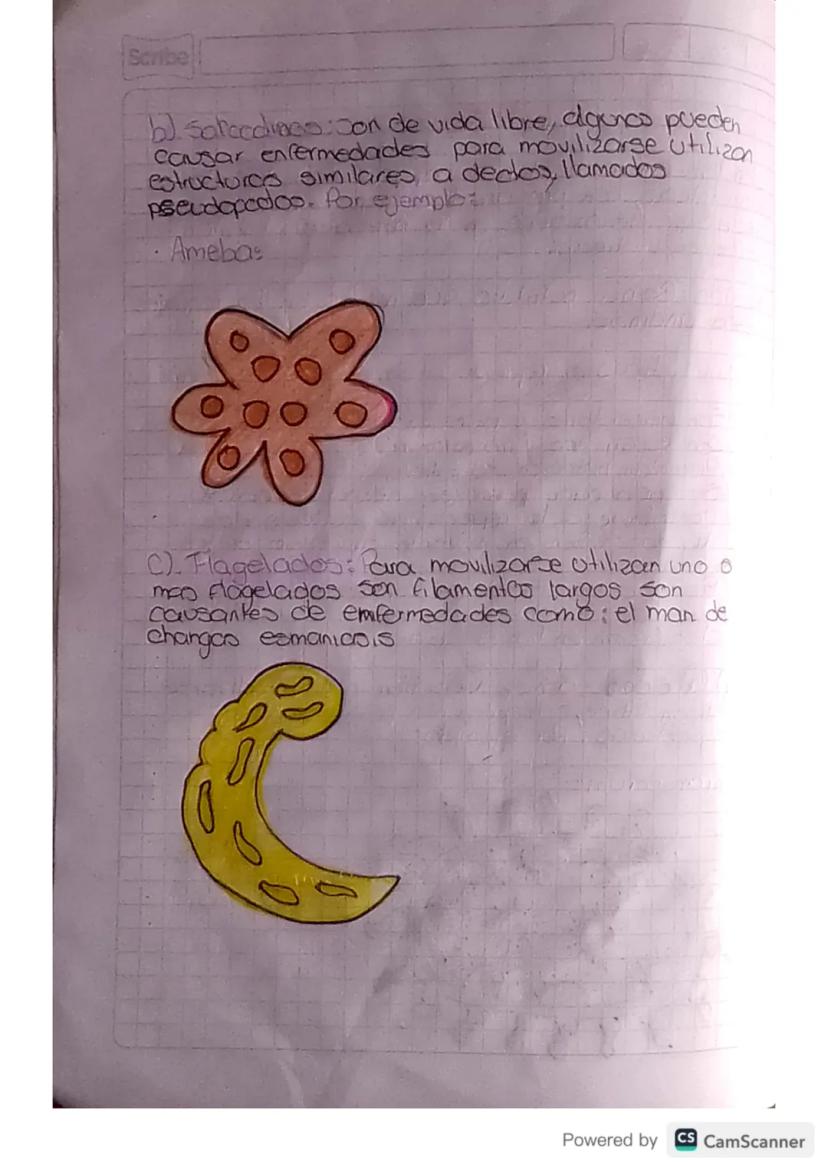 Scribe
b). Sarcodinos: son de vida libre, algunos pueden
causar enfermedades para movilizarse utilizan
estructuras similares a dedos, llamados
pseudopodos. Por ejemplo:
· Amebas
c). Flagelados: Para movilizarse utilizan uno o
mas flagelados son filamentos largos son
causantes de enfermedades como: el man de
changas esmaniasis
Powered by CS CamScanner